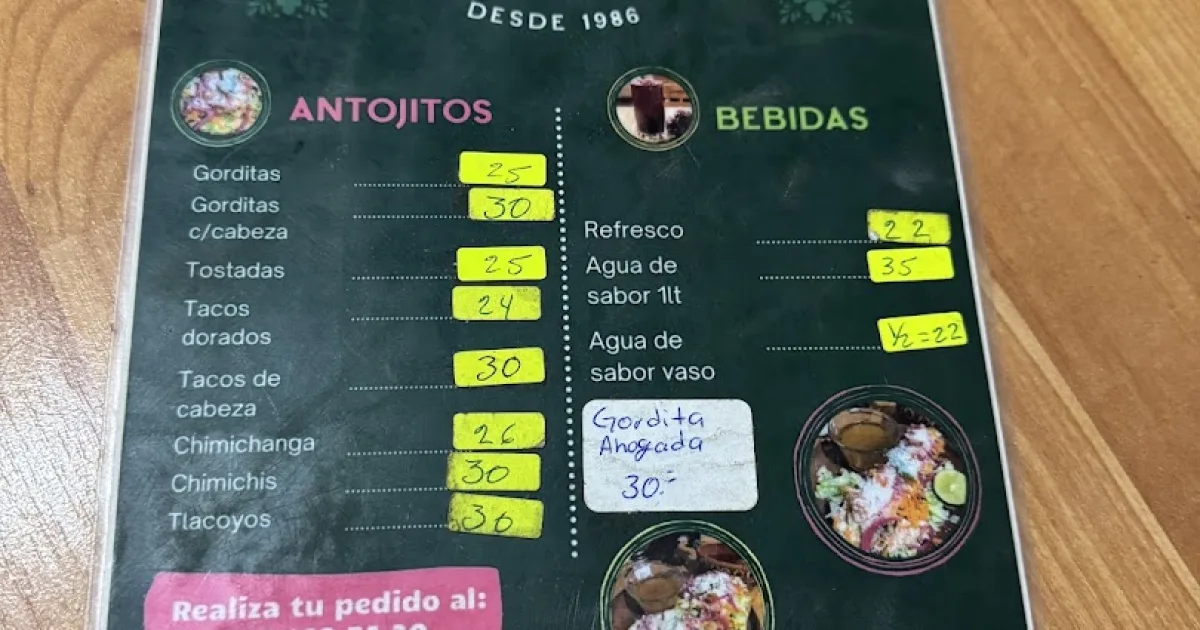 DESDE 1986
ANTOJITOS
Gorditas 25
Gorditas 30
c/cabeza
Tostadas 25
Tacos 24
dorados
Tacos de 30
cabeza
Chimichanga 26
Chimichis 30
Tlacoyos 30
Realiza tu pedido al:
BEBIDAS
Refresco 22
Agua de 35
sabor 1lt
Agua de ½=22
sabor vaso
Gordita
Ahogada
30.-